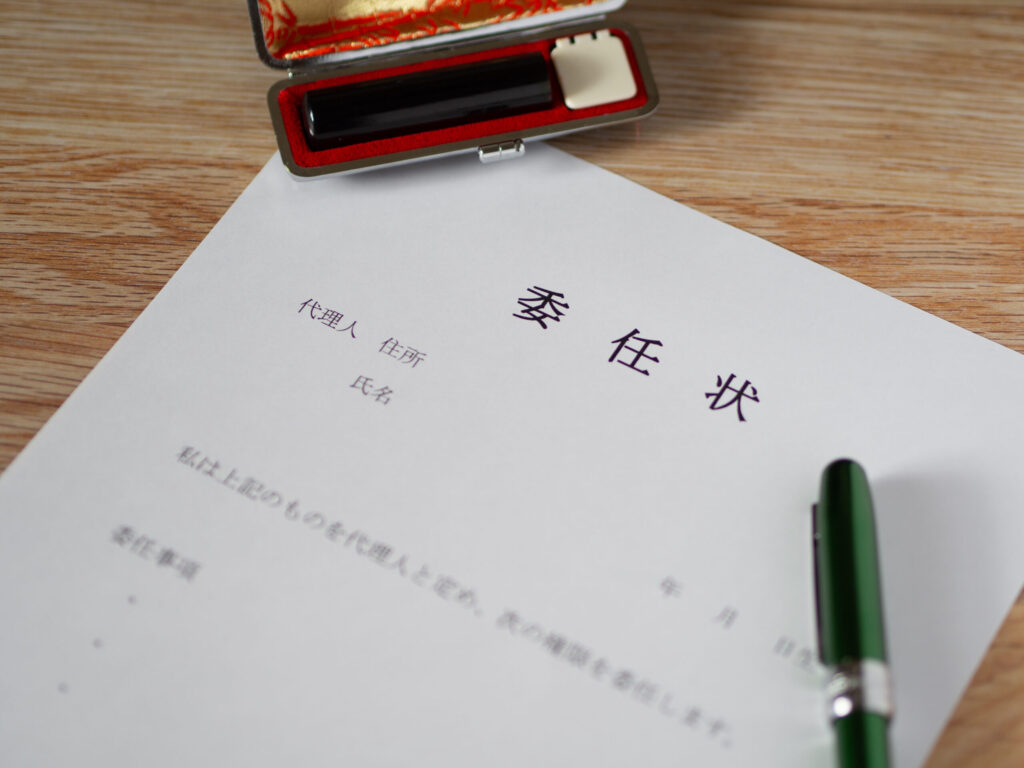 委任状
代理人 住所
氏名
年 月 日生
私は上記のものを代理人と定め、次の権限を委任します。
委任事項
・
・
・